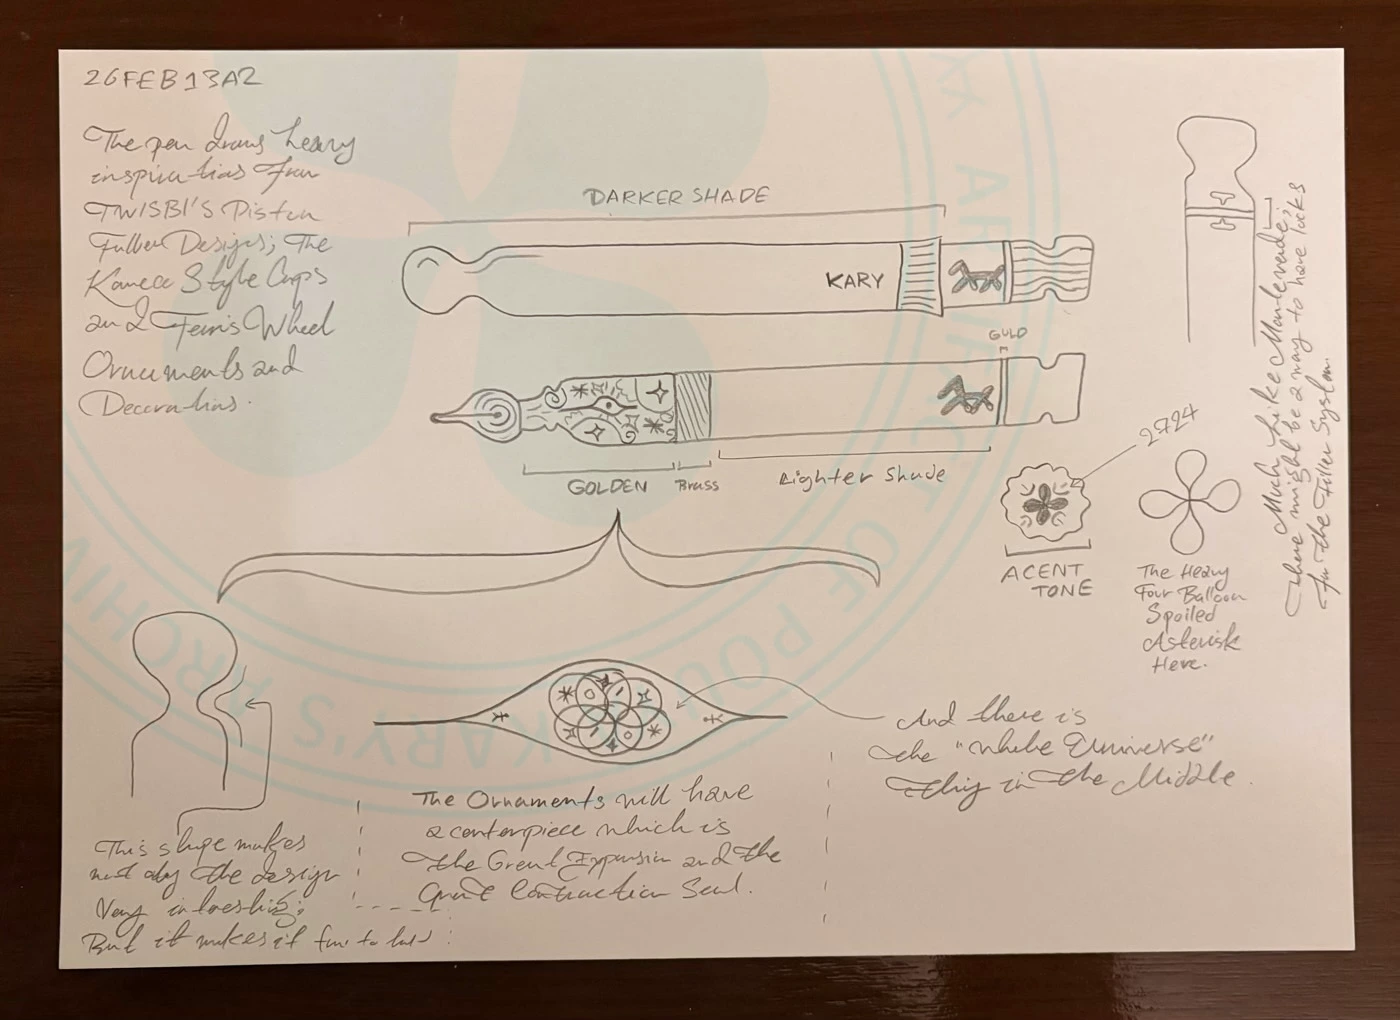 26FEB13A2
The pen draws heavy
inspirations from
TWISBI'S Piston
Filler Designs; The
Kaweco Style Caps
and Ferris Wheel
Ornaments and
Decorations.
DARKER SHADE
KARY
GOLD
GOLDEN
Brass
Lighter Shade
2724
ACENT
TONE
The Heavy
Four Balloon
Spoiled
Asterisk
Here.
Much Like Manlenade;
there might be a way to have locks
for the Filler System.
This shape makes
not only the design
Very interesting;
But it makes it fun to hold
The Ornaments will have
a centerpiece which is
the Great Expansion and the
Great Contraction Seal.
And there is
the "whole Universe"
thing in the Middle.
KARY'S ARCHIV
OF POL